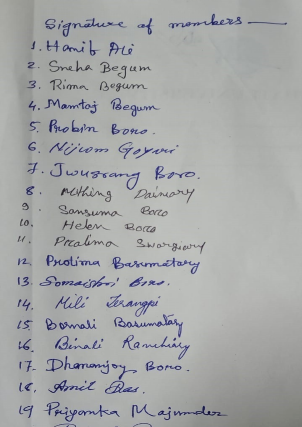 Signature of members —
1. Hanif Ali
2. Sneha Begum
3. Rima Begum
4. Mamtaj Begum
5. Probin Boro.
6. Nijiom Goyari
7. Jwusrang Boro.
8. Mithing Daimary
9. Sansuma Boro
10. Helen Boro
11. Pratima Swargiary
12. Protima Basumatary
13. Somaishri Boro.
14. Mili Terangpi
15 Bornali Basumatary
16. Binali Ranchiary
17. Dhananjoy Boro.
18. Amil Das.
19 Priyanka Majumder